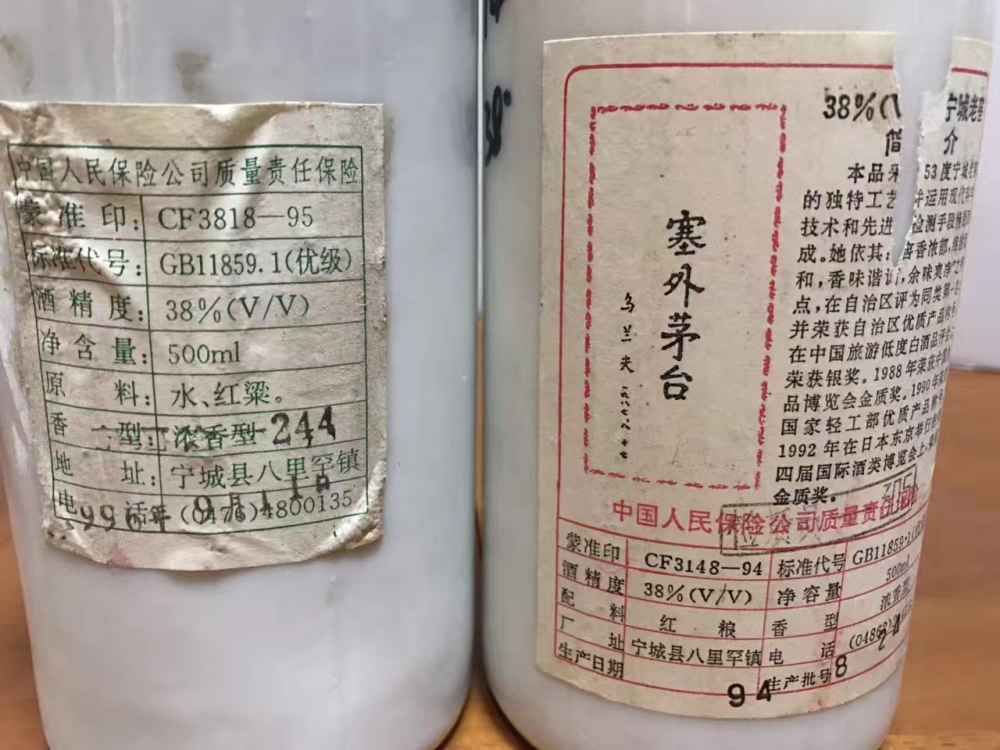 中国人民保险公司质量责任保险
蒙准印: CF3818—95
标准代号: GB11859.1(优级)
酒精度: 38%(V/V)
净含量: 500ml
原料: 水、红粱。
香型: 浓香型
244
地址: 宁城县八里罕镇
电话: (0476)4800135
塞外茅台
乌兰夫
38%(V
宁城老
简介
本品采
53度宁城
的独特工艺
并运用现代
技术和先进
检测手段
成。她依其:
酱香浓郁,
和,香味谐
余味爽净
点,在自治区评为同类第
并荣获自治区优质产品
在中国旅游低度白酒品评
荣获银奖。1988年荣获中
品博览会金质奖。1990年
国家轻工部优质产品
1992年在日本东京举行
四届国际酒类博览会上
金质奖。
中国人民保险公司质量责任保险
蒙准印 CF3148—94 标准代号 GB11859.1
酒精度 38%(V/V) 净容量 500ml
配料 红粮 香型 浓
厂址 宁城县八里罕镇 电话
生产日期 94 生产批号 8